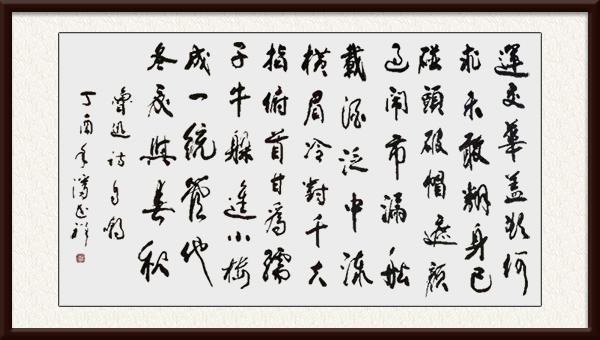 運交華蓋欲何
求未敢翻身已
碰頭破帽遮顏
過鬧市漏船
載酒泛中流
橫眉冷對千夫
指俯首甘爲孺
子牛躲進小樓
成一統管他
冬夏與春秋
魯迅詩自嘲
丁酉年